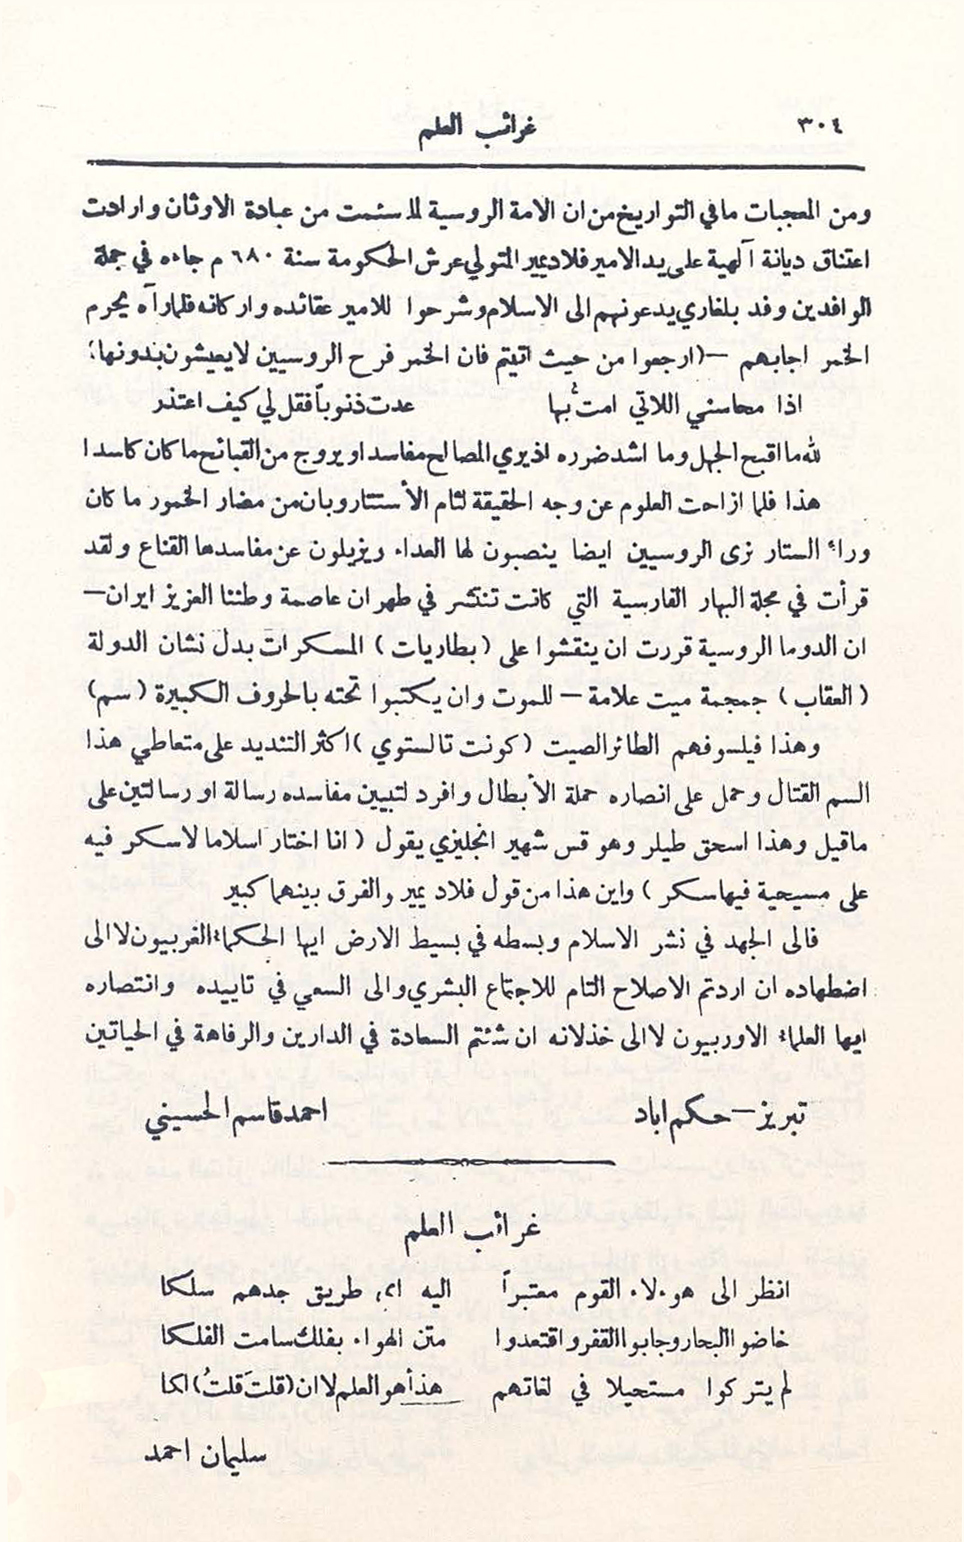 ٣٠٤ غرائب العلم
ومن المعجبات مافي التواريخ من ان الامة الروسية لما سئمت من عبادة الاوثان وارادت
اعتناق ديانة آلهية على يد الامير فلاديمير المتولي عرش الحكومة سنة ٦٨٠ م جاءه في جملة
الوافدين وفد بلغاري يدعونهم الى الاسلام وشرحوا للامير عقائده واركانه فلما رآه يحرم
الخمر اجابهم —(ارجعوا من حيث اتيتم فان الخمر فرح الروسيين لايعيشون بدونها)؛
اذا محاسني اللاتي امتُ بها عدت ذنوباً فقل لي كيف اعتذر
لله ما اقبح الجهل وما اشد ضرره اذ يري المصالح مفاسد او يروج من القبائح ما كان كاسدا
هذا فلما ازاحت العلوم عن وجه الحقيقة لثام الأستتار وبان من مضار الخمور ما كان
وراء الستار نرى الروسيين ايضا ينصبون لها العداء ويزيلون عن مفاسدها القناع ولقد
قرأت في مجلة البهار الفارسية التي كانت تنتشر في طهران عاصمة وطننا العزيز ايران—
ان الدوما الروسية قررت ان ينقشوا على (بطاريات) المسكرات بدل نشان الدولة
(العقاب) جمجمة ميت علامة — للموت وان يكتبوا تحته بالحروف الكبيرة (سم)
وهذا فيلسوفهم الطائر الصيت (كونت تالستوي) اكثر التنديد على متعاطي هذا
السم القتال وحمل على انصاره حملة الأبطال وافرد لتبيين مفاسده رسالة او رسالتين على
ماقيل وهذا اسحق طيلر وهو قس شهير انجليزي يقول (انا اختار اسلاما لاسكر فيه
على مسيحية فيها سكر) واين هذا من قول فلاديمير والفرق بينهما كبير
فالى الجهد في نشر الاسلام وبسطه في بسيط الارض ايها الحكماء الغربيون لا الى
اضطهاده ان اردتم الاصلاح التام للاجتماع البشري والى السعي في تاييده وانتصاره
ايها العلماء الاوربيون لا الى خذلانه ان شئتم السعادة في الدارين والرفاهة في الحياتين
تبريز — حكم اباد احمد قاسم الحسيني
غرائب العلم
انظر الى هوءلاء القوم معتبراً اليه اي طريق جدهم سلكا
خاضوا البحار وجابوا القفر واقتعدوا متن الهواء بفلك سامت الفلكا
لم يتركوا مستحيلا في لغاتهم هذا هو العلم لا ان (قلتَ قلتُ) لكا
سليمان احمد